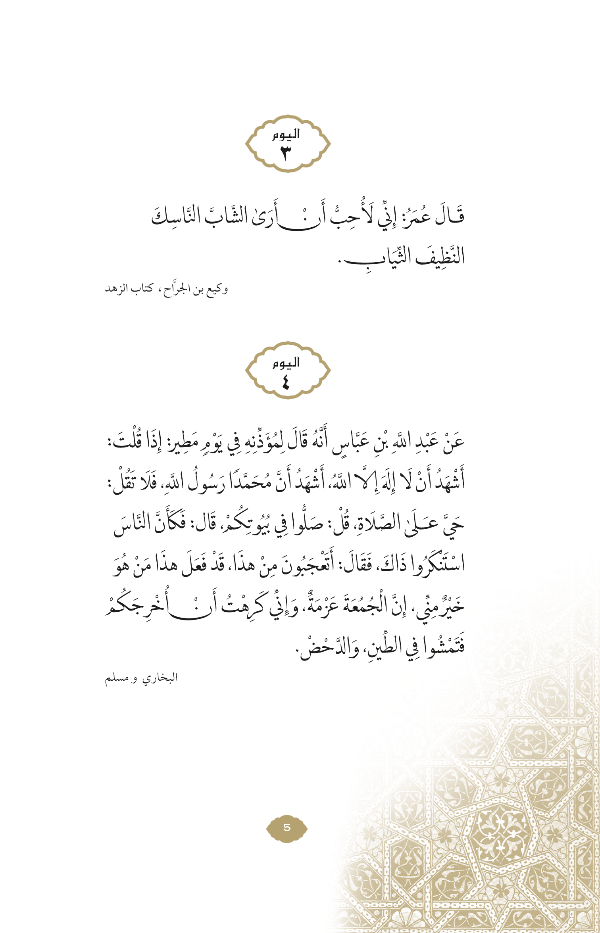 اليوم
٣
قَالَ عُمَرُ: إِنِّي لَأُحِبُّ أَنْ أَرَىٰ الشَّابَّ النَّاسِكَ
النَّظِيفَ الثِّيَابِ.
وكيع بن الجرَّاح، كتاب الزهد
اليوم
٤
عَنْ عَبْدِ اللَّهِ بْنِ عَبَّاسٍ أَنَّهُ قَالَ لِمُؤَذِّنِهِ فِي يَوْمٍ مَطِيرٍ: إِذَا قُلْتَ:
أَشْهَدُ أَنْ لَا إِلهَ إِلَّا اللَّهُ، أَشْهَدُ أَنَّ مُحَمَّدًا رَسُولُ اللَّهِ، فَلَا تَقُلْ:
حَيَّ عَلَىٰ الصَّلَاةِ، قُلْ: صَلُّوا فِي بُيُوتِكُمْ، قَال: فَكَأَنَّ النَّاسَ
اسْتَنْكَرُوا ذَاكَ، فَقَالَ: أَتَعْجَبُونَ مِنْ هذَا، قَدْ فَعَلَ هذَا مَنْ هُوَ
خَيْرٌ مِنِّي. إِنَّ الْجُمُعَةَ عَزْمَةٌ، وَإِنِّي كَرِهْتُ أَنْ أُخْرِجَكُمْ
فَتَمْشُوا فِي الطِّينِ، وَالدَّحْضْ.
البخاري و مسلم
5